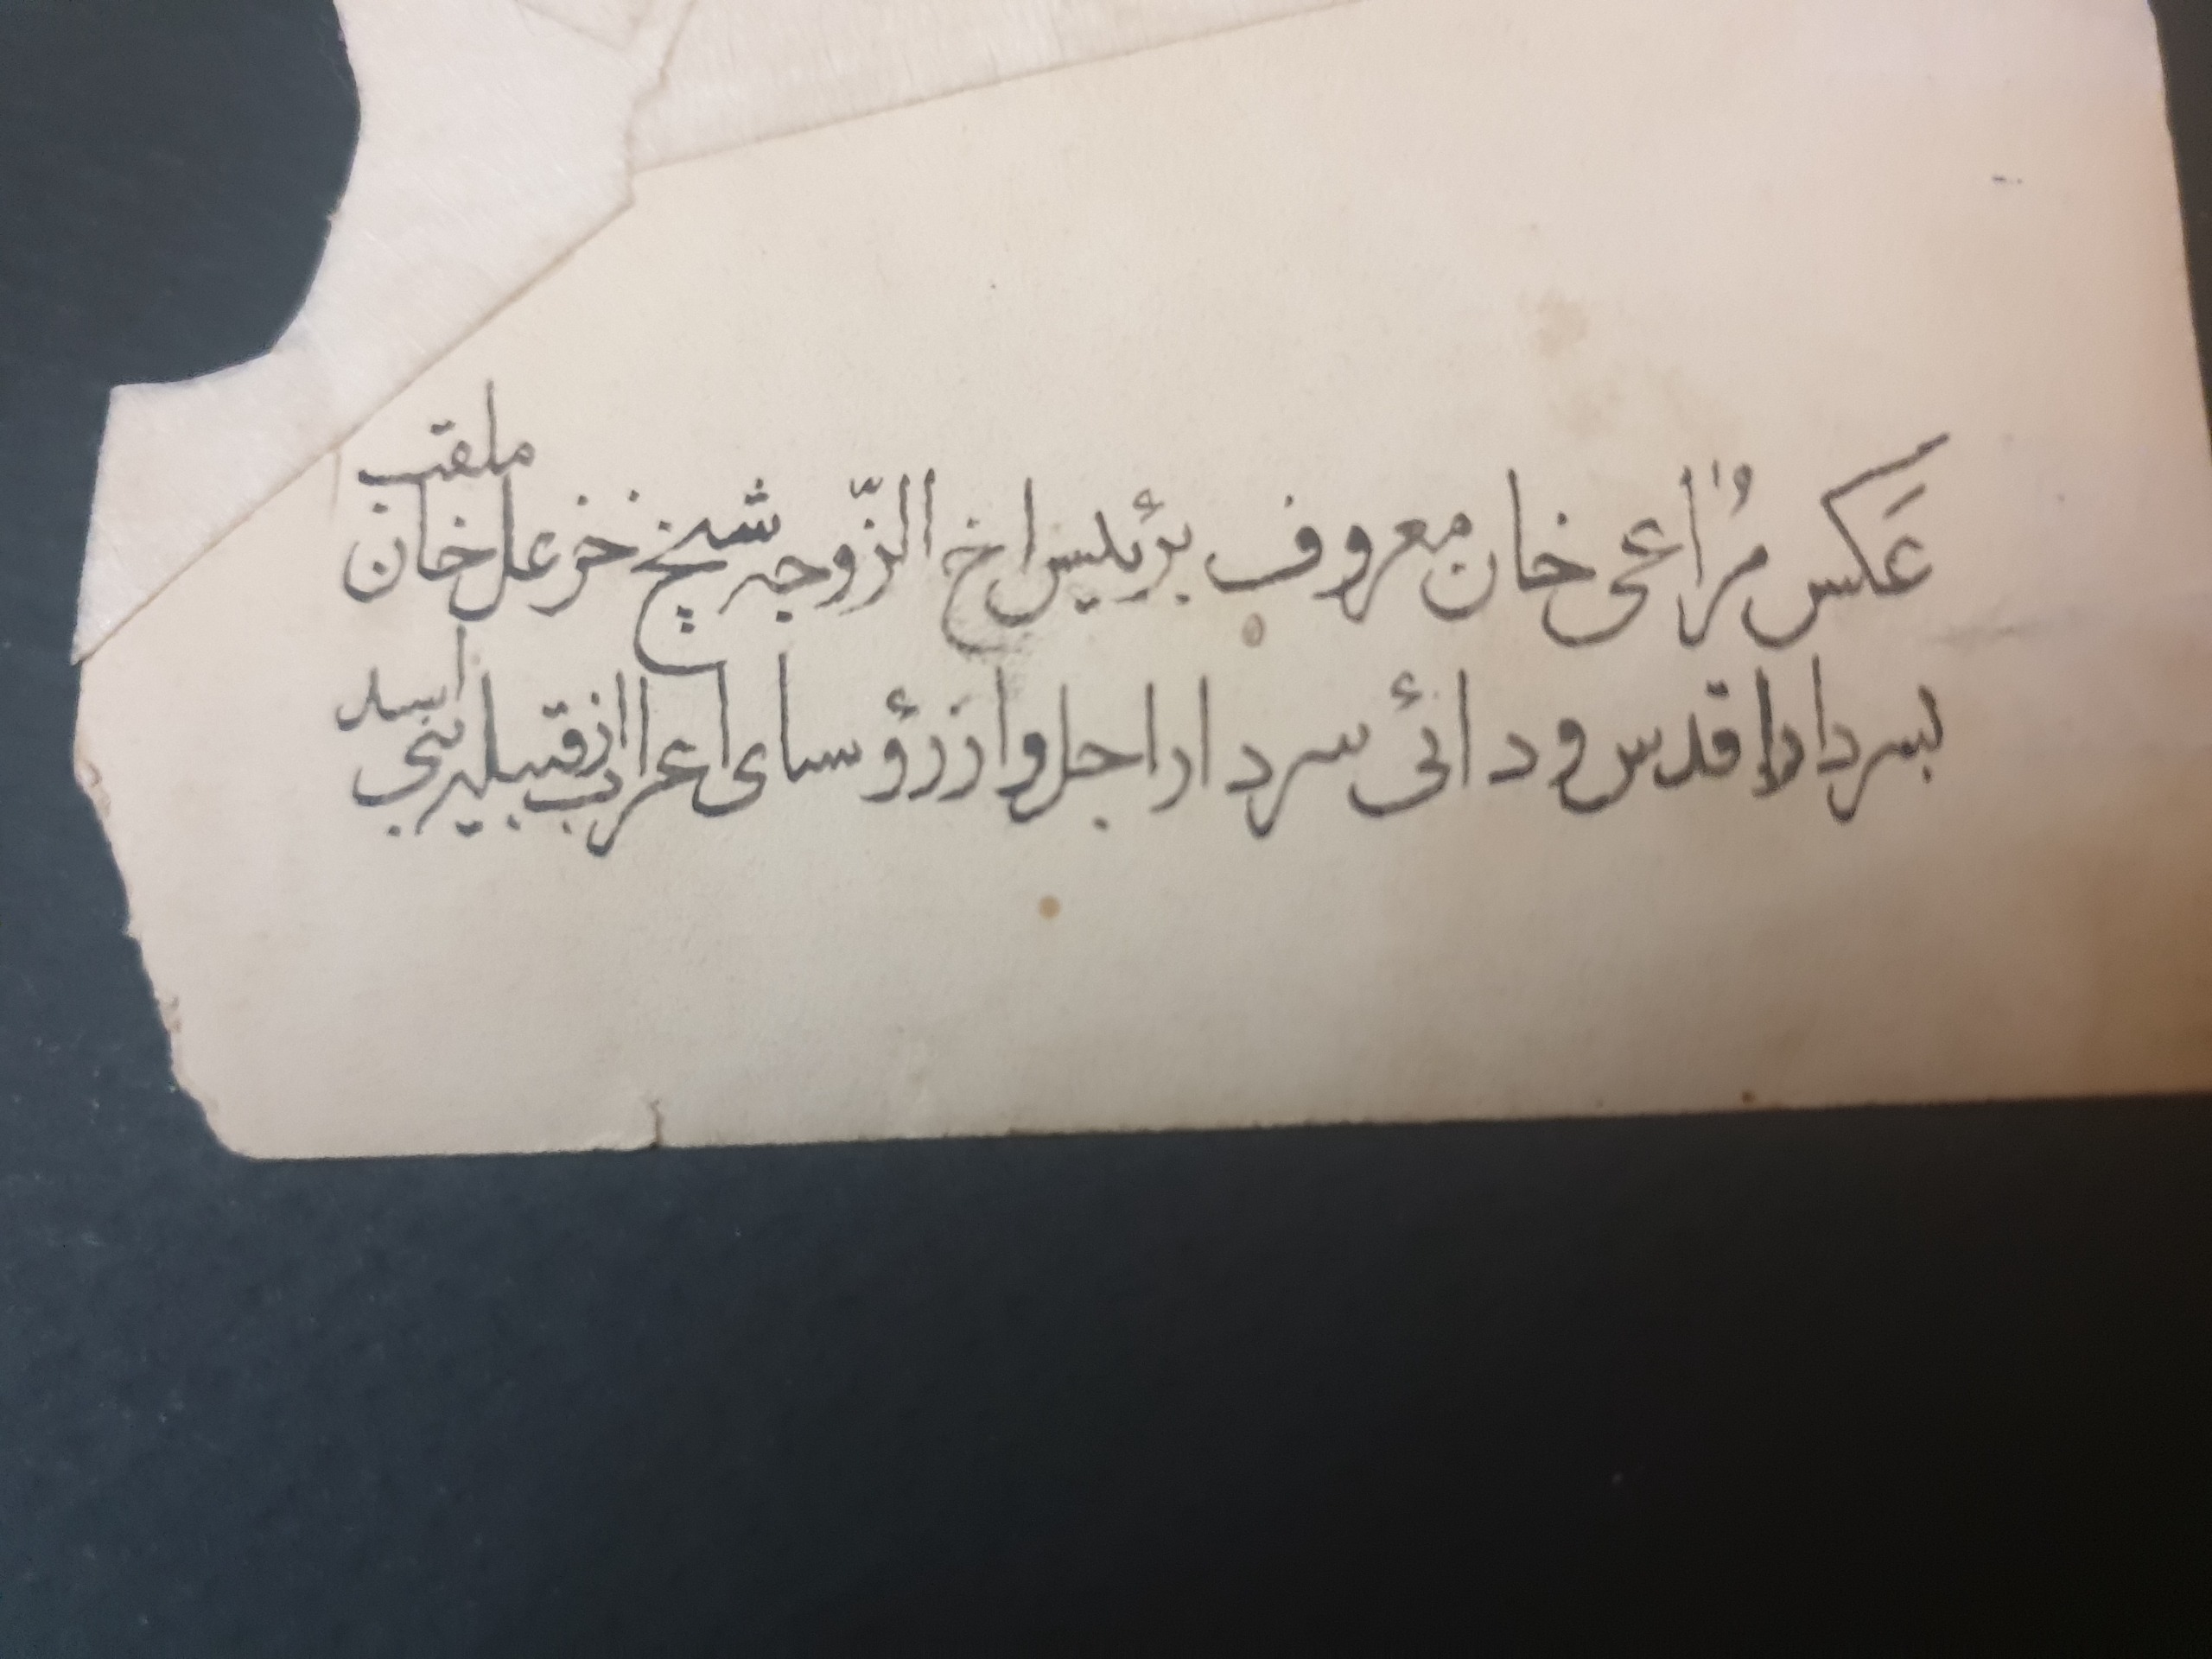 عَکس مُرٰاعی خان معروف برئیس اخ الزّوجه شیخ خزعل خان ملقب
بسردار اقدس و دائی سردار اجل و از رؤسای اعراب از قبیله بنی اسد